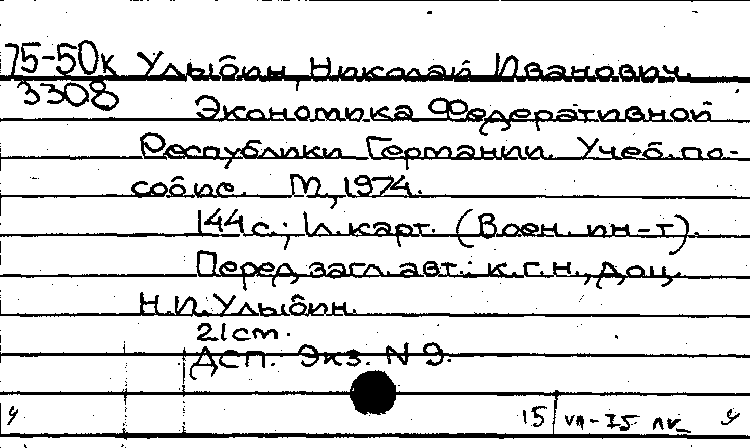 75-50к Улыбин, Николай Иванович.
3308
Экономика Федеративной
Республики Германии. Учеб. по-
собие. М., 1974.
144 с.; 1 л. карт. (Воен. ин-т).
Перед загл. авт.: к.г.н., доц.
Н.И. Улыбин.
21 cm.
ДСП. Экз. N 9.
15